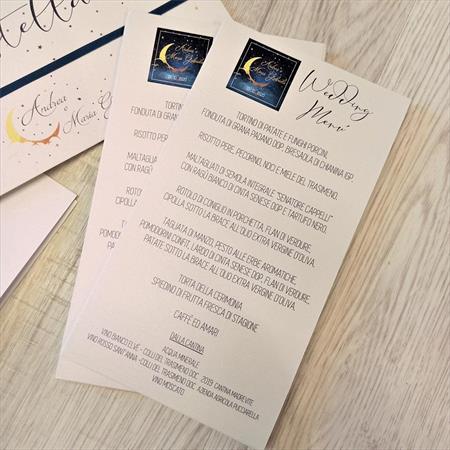 tella
Andrea
Maria Gabriella
Andrea
Maria Gabriella
TORTINO
FONDUTA DI GRANA
RISOTTO PERE
MALTAGLIATI
CON RAGÙ BIANCO
ROTOLO
CIPOLLA
POMODORINI
PATATE
VINO BIANCO
VINO ROSSO SANT'ANNA
Andrea
Maria Gabriella
Wedding
Menù
TORTINO DI PATATE E FUNGHI PORCINI,
FONDUTA DI GRANA PADANO DOP, BRESAOLA DI CHIANINA IGP
RISOTTO PERE, PECORINO, NOCI E MIELE DEL TRASIMENO,
MALTAGLIATI DI SEMOLA INTEGRALE "SENATORE CAPPELLI"
CON RAGÙ BIANCO DI CINTA SENESE DOP E TARTUFO NERO,
ROTOLO DI CONIGLIO IN PORCHETTA, FLAN DI VERDURE,
CIPOLLA SOTTO LA BRACE ALL'OLIO EXTRA VERGINE D'OLIVA,
TAGLIATA DI MANZO, PESTO ALLE ERBE AROMATICHE,
POMODORINI CONFIT, LARDO DI CINTA SENESE DOP, FLAN DI VERDURE,
PATATE SOTTO LA BRACE ALL'OLIO EXTRA VERGINE D'OLIVA,
TORTA DELLA CERIMONIA
SPIEDINO DI FRUTTA FRESCA DI STAGIONE
CAFFÈ ED AMARI
DALLA CANTINA
ACQUA MINERALE
VINO BIANCO ELVÉ - COLLI DEL TRASIMENO DOC 2019 CANTINA MADREVITE
VINO ROSSO SANT'ANNA - COLLI DEL TRASIMENO DOC AZIENDA AGRICOLA PUCCIARELLA
VINO MOSCATO